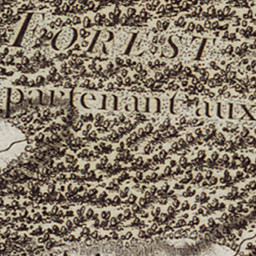 FOREST
partenant aux